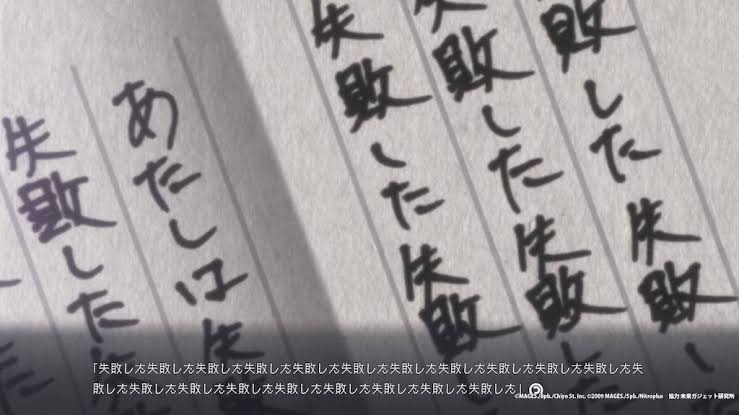 敗した失敗し
失敗した失敗し
失敗した失敗
あたしは失
失敗した
「失敗した失敗した失敗した失敗した失敗した失敗した失敗した失敗した失敗した失敗した失敗した失
敗した失敗した失敗した失敗した失敗した失敗した失敗した失敗した失敗した」
©MAGES./5pb./Chiyo St. Inc. ©2009 MAGES./5pb./Nitroplus 協力 未来ガジェット研究所